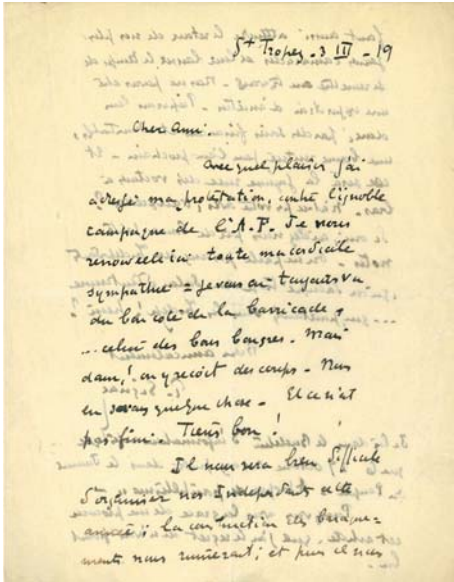 St Tropez - 3 III - 19
Cher ami.
Avec quel plaisir j'ai
adressé ma protestation, contre l'ignoble
campagne de l'A.F. Je vous
renouvelle ici toute ma cordiale
sympathie = Je vous ai toujours vu
du bon coté de la barricade,
... celui des bons bougres. Mais
dam! on y recoit des coups - Nous
en savons quelque chose - Et ce n'est
pas fini. Tiens bon!
Il nous sera bien difficile
d'organiser nos Indépendants cette
année; la construction des baraque=
ments nous ruinerait; et puis il nous